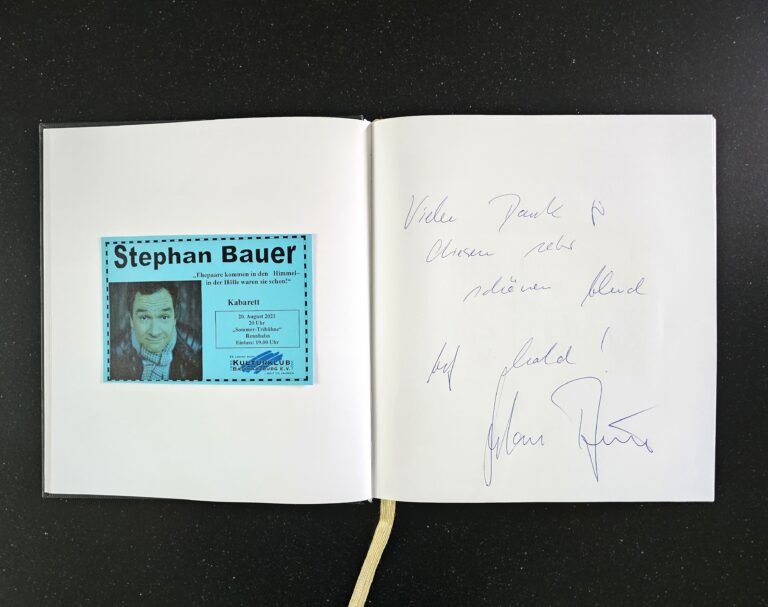 Stephan Bauer
„Ehepaare kommen in den Himmel–
in der Hölle waren sie schon!“
Kabarett
20. August 2021
20 Uhr
„Sommer-Tribühne“
Rennbahn
Einlass: 19.00 Uhr
KULTURKLUB
E.V.
Vielen Dank für
diesen sehr
schönen Abend
Auf bald!
Stephan Bauer